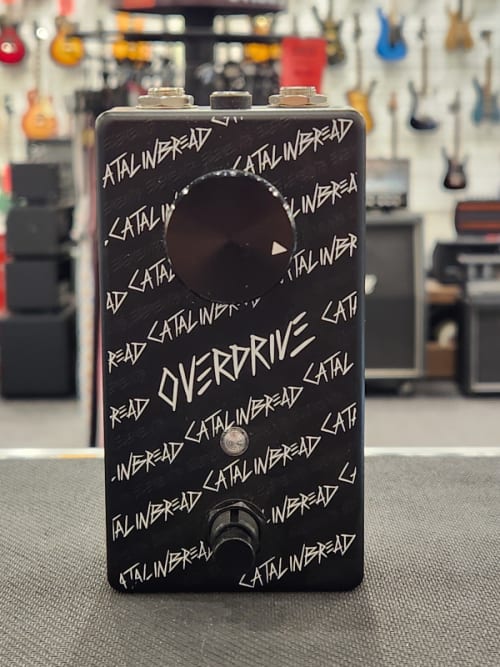 ATALINBREAD
CATALINBREAD
CATALINBREA
CATALI
CATALI
TALINBR
AD CATALINBREAD
CATA
READ
OVERDRIVE
CATAL
READ CATALINBREAD
CATA
-INBREAD CATALINBREAD
TALINBREAD
INBREAD CA
ATALINBREAD
CATALINBREAD